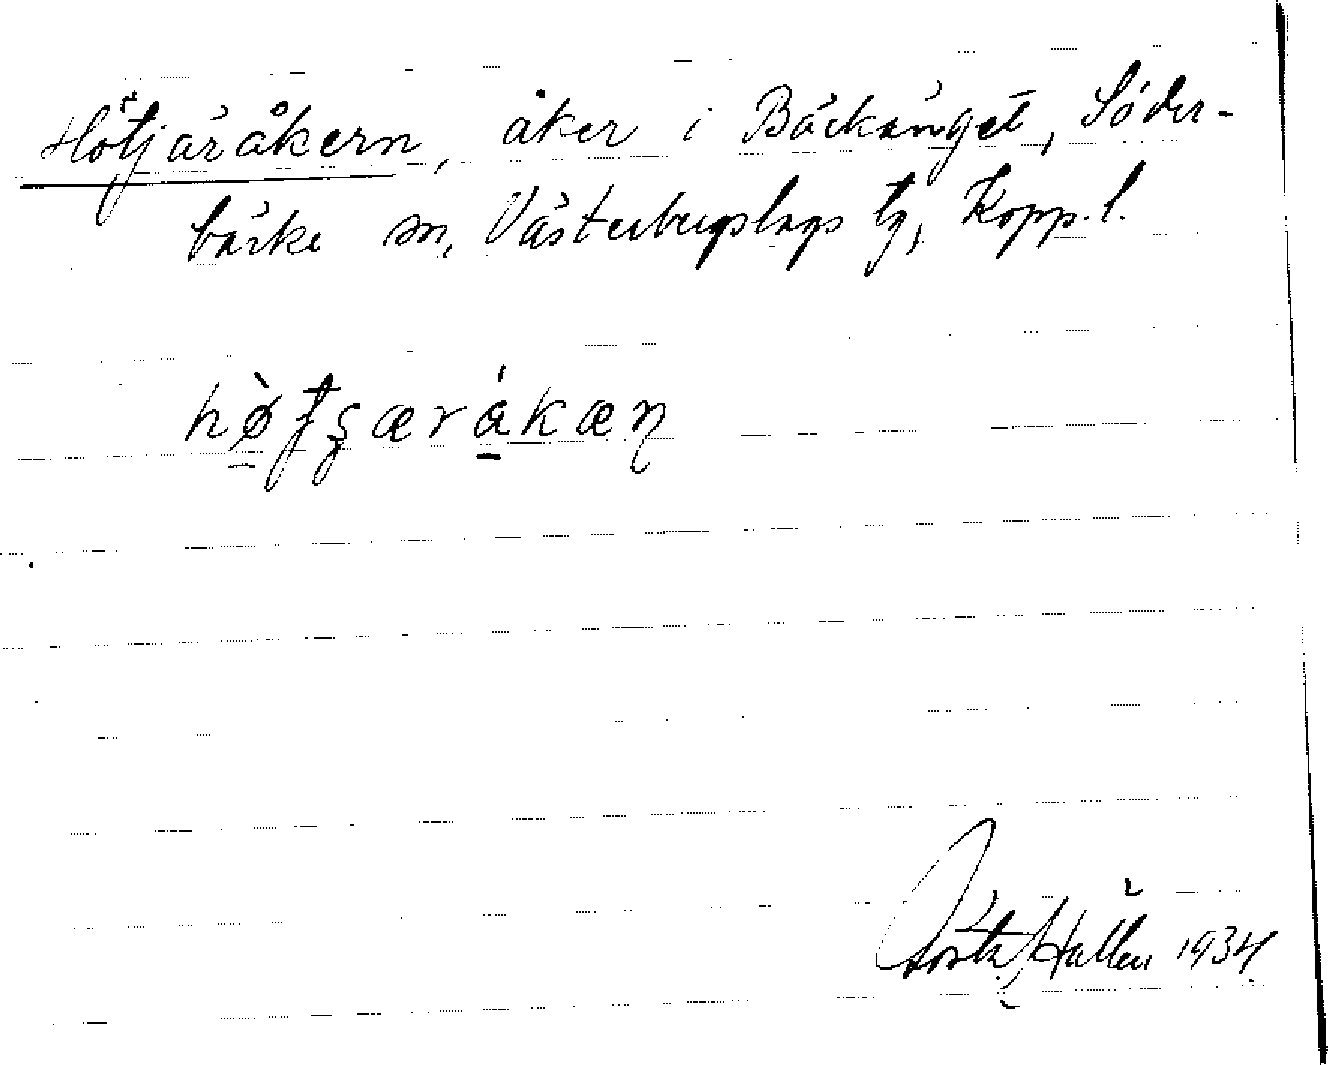 Hötjäråkern, åker i Bäckänget, Söder-
bärke sn, Västerbergslags tg, Kopp. l.
Gösta Hallén 1934.